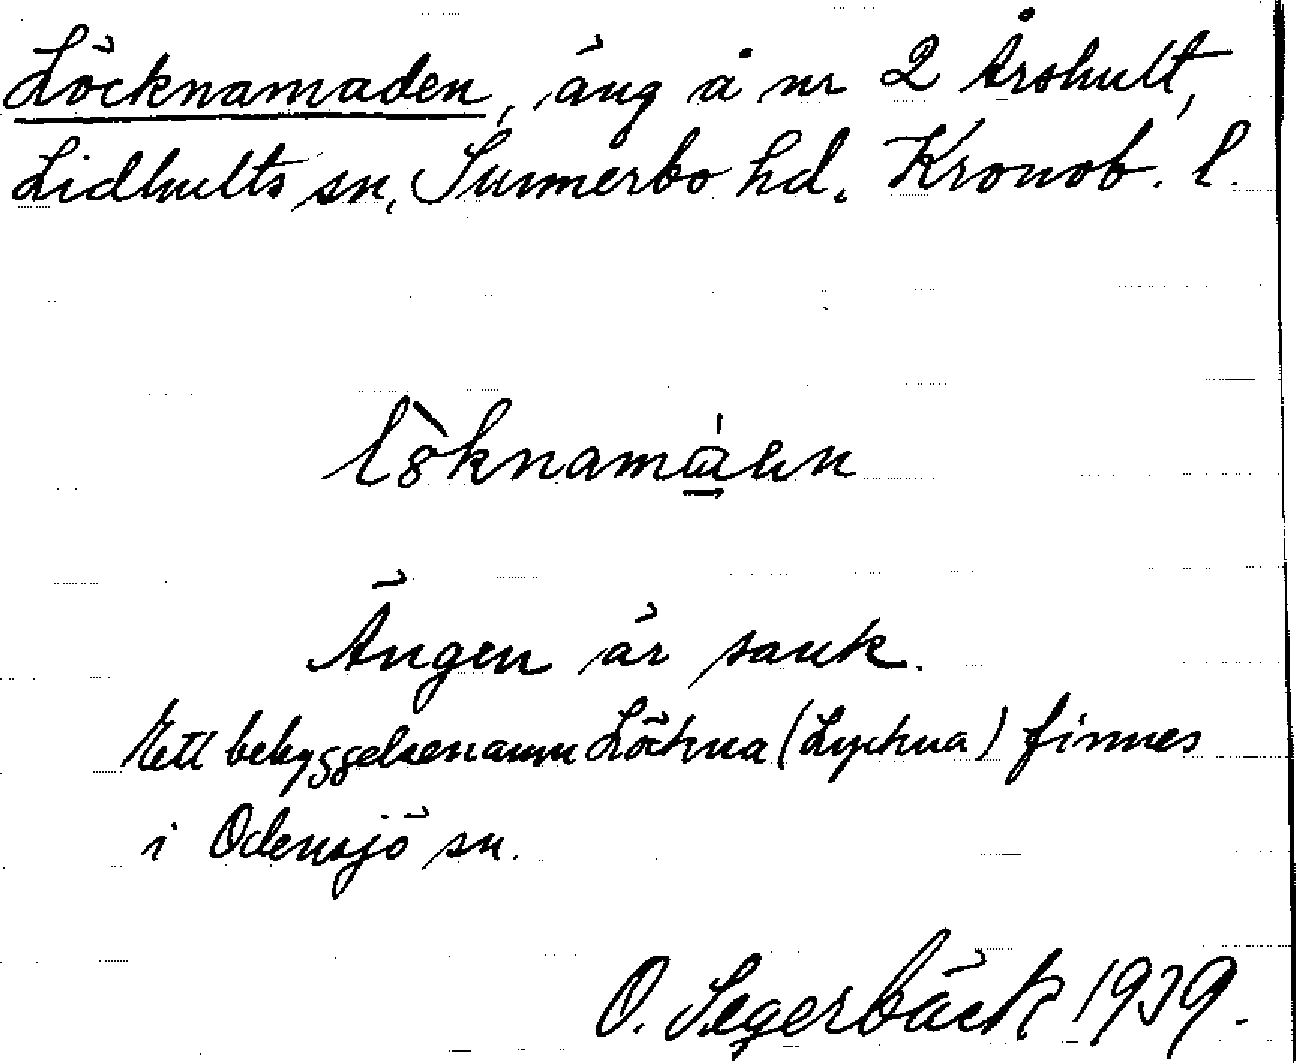 Löcknamaden, äng å nr 2 Årshult,
Lidhults sn, Sunnerbo hd. Kronob. l.
Ängen är sank.
Ett bebyggelsenamn Löckna (Lyckna) finnes
i Odensjö sn.
O. Segerbäck 1939.